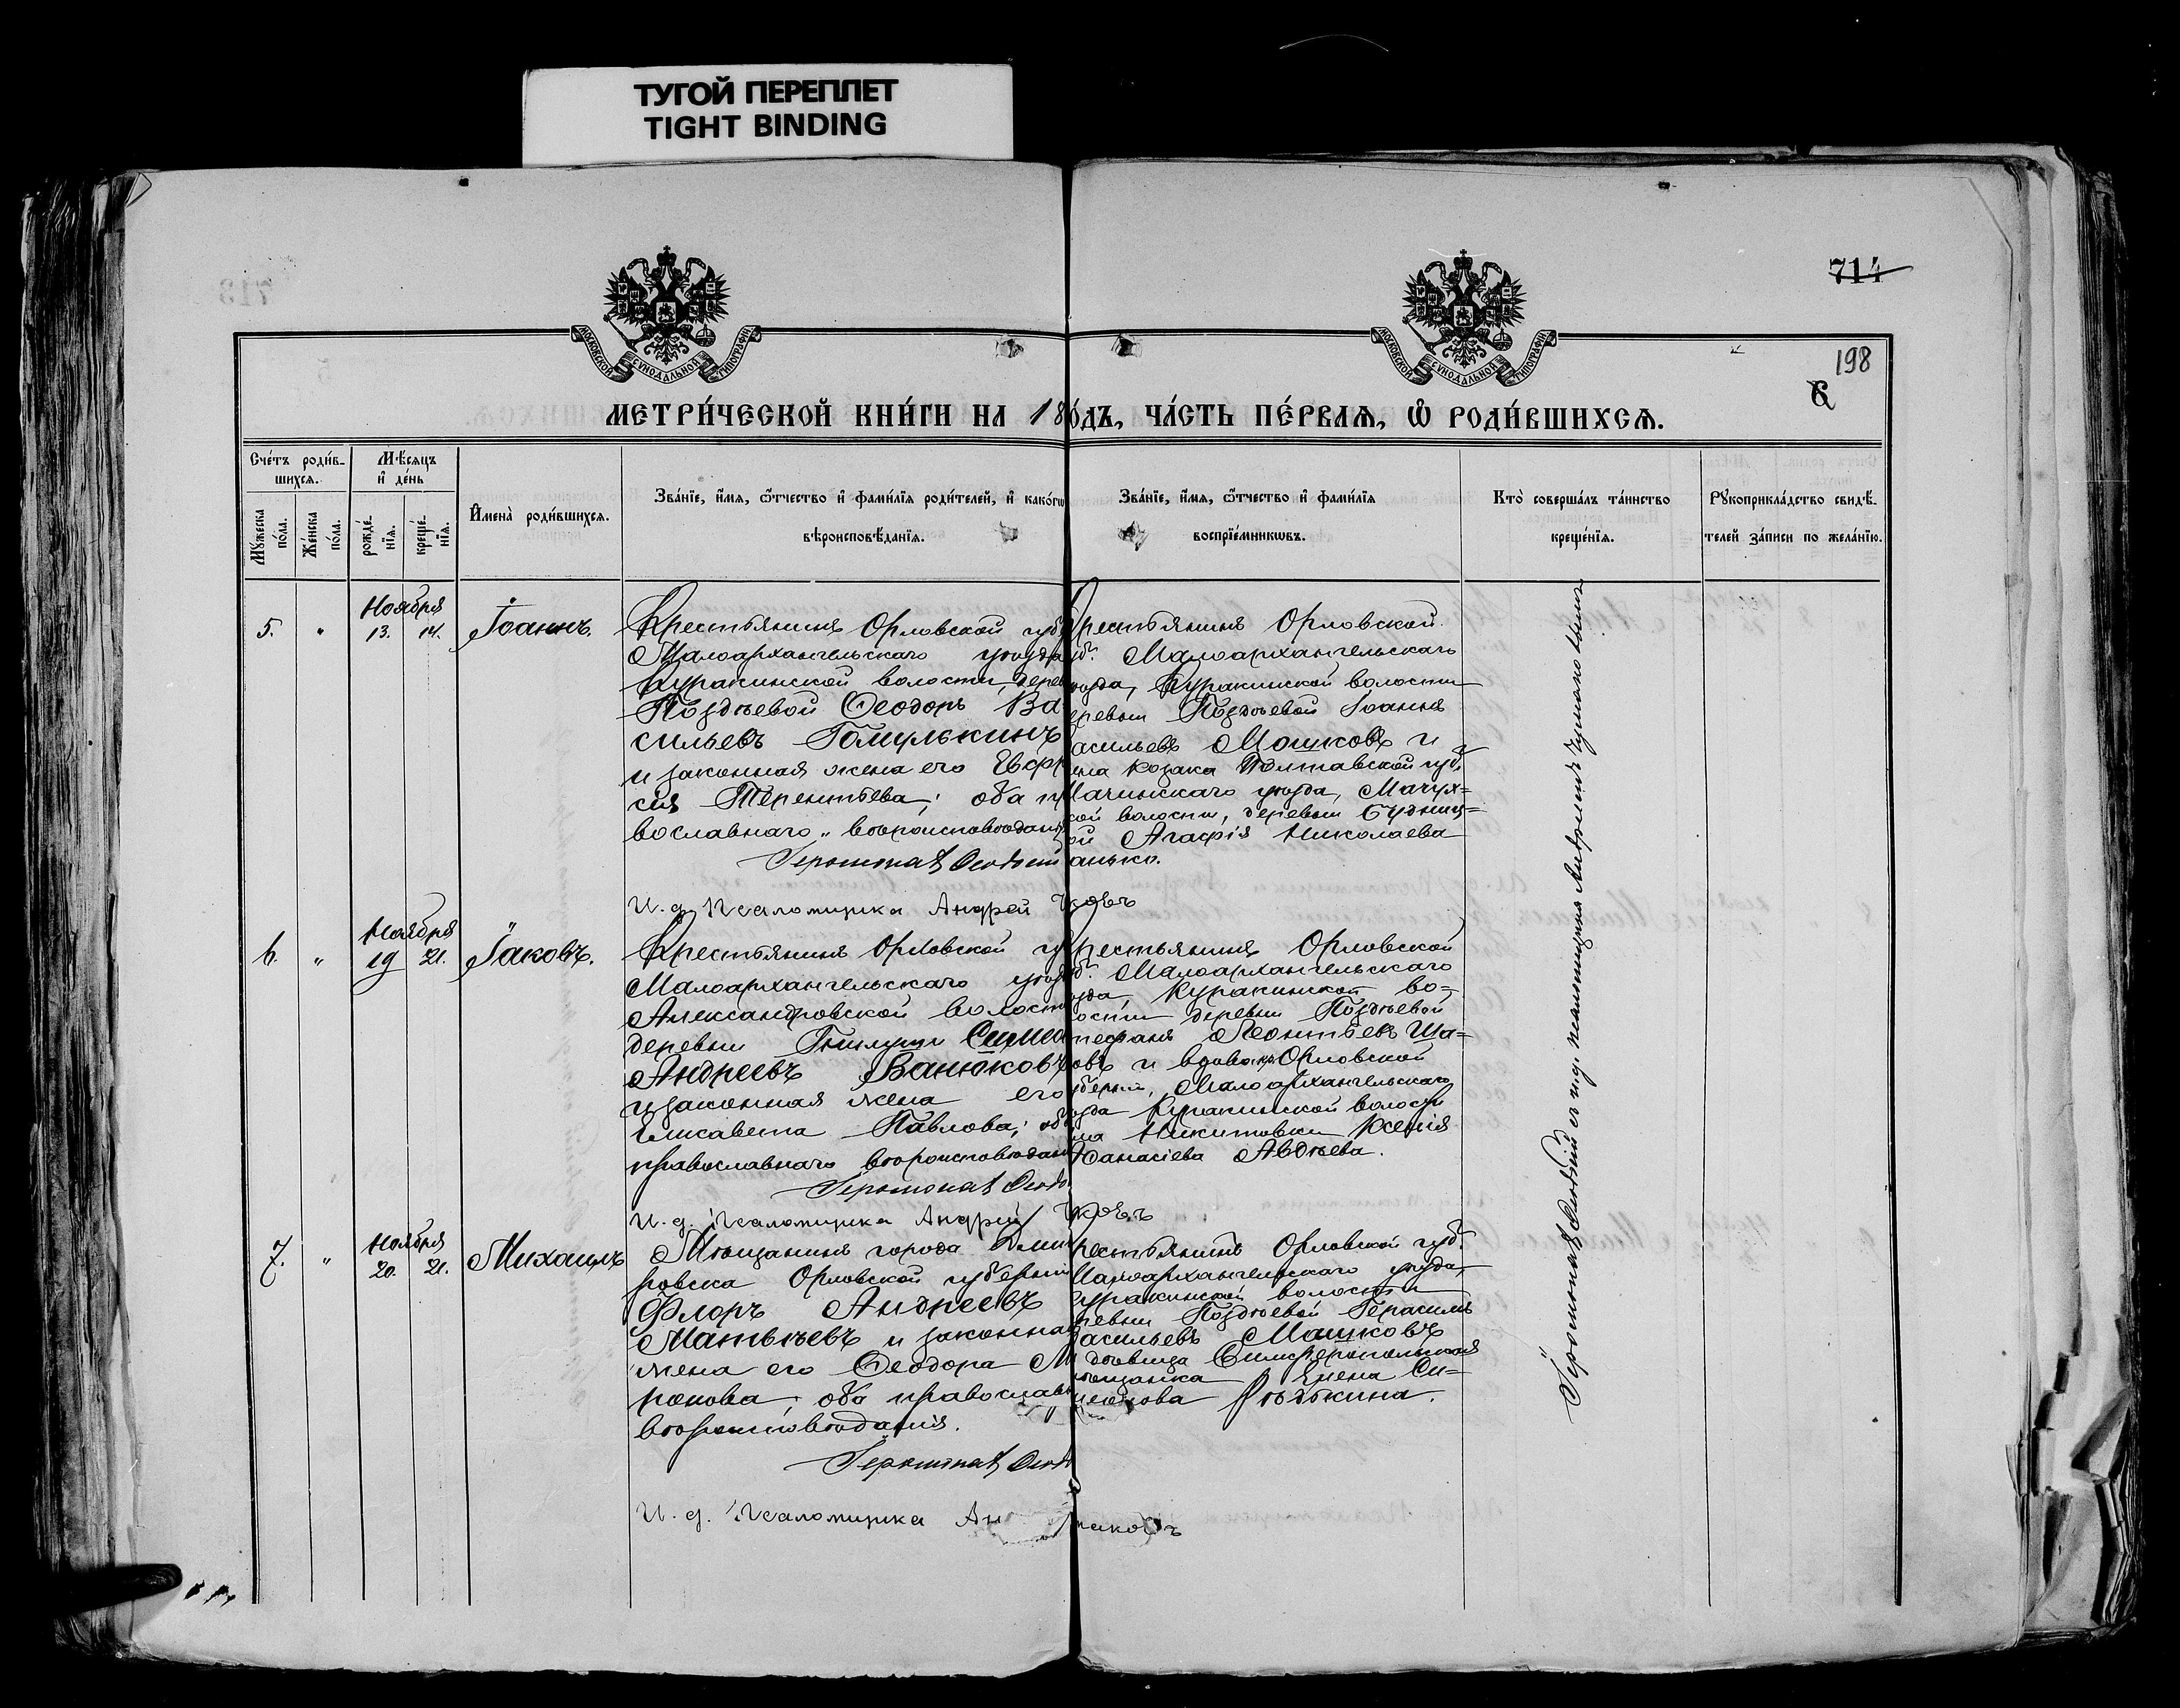 ТУГОЙ ПЕРЕПЛЕТ
TIGHT BINDING
714
198
МОСКОВСКОЙ СѴНОДАЛЬНОЙ ТИПОГРАФІИ
МОСКОВСКОЙ СѴНОДАЛЬНОЙ ТИПОГРАФІИ
МЕТРИ́ЧЕСКОЙ КНИ́ГИ НА 18
О́ДЪ, ЧА́СТЬ ПЕ́РВАѦ, Ѽ РОДИ́ВШИХСѦ.
Сче́тъ роди́в-
шихся.
Мꙋжеска по́ла.
Же́нска по́ла.
Мѣ́сяцъ
и҆ де́нь
рожде́-
нїя.
креще́-
нїя.
И҆мена̀ роди́вшихся.
Зва́нїе, и҆́мя, ѻ҆́тчество и҆ фами́лїя роди́телей, и҆ како́гѡ
вѣроисповѣ́данїя.
Зва́нїе, и҆́мя, ѻ҆́тчество и҆ фами́лїя
воспрїе́мникѡвъ.
Кто̀ соверша́лъ та́инство
креще́нїя.
Рꙋкоприкла́дство свидѣ́-
телей за́писи по жела́нїю.
5. "
Ноября
13. 14.
Іоаннъ.
Крестьянинъ Орловской губ
Малоархангельскаго уѣзда
Куракинской волости, дерев
Поздѣевой Ѳеодоръ Ва
сильевъ Гомулькинъ
и законная жена его Евфр
сия Терентьева; оба пр
вославнаго вѣроисповѣдан
Іеромонахъ Ѳеодосій
И. д. Псаломщика Андрей
рестьянинъ Орловской
уб. Малоархангельскаго
ѣзда, Куракинской волости
еревни Поздѣевой Іоаннъ
асильевъ Машковъ и
ена козака Полтавской губ.
уѣзда, Мачух=
кой волости, деревни Будниц=
ой Агафія Николаева
анько.
6. "
Ноября
19 21.
Іаковъ.
Крестьянинъ Орловской гу
Малоархангельскаго уѣзд
Александровской волост
деревни Гнилуши Симео
Андреевъ Ванюковъ
и законная жена его
Елисавета Павлова; об
православнаго вѣроисповѣдан
Іеромонахъ Ѳеодо
И. д. Псаломщика Андрей
рестьянинъ Орловской
уб. Малоархангельскаго
ѣзда, Куракинской во-
лости деревни Поздѣевой
тефанъ Леонтьевъ Ша=
овъ и вдова Орловской
уберніи, Малоархангельскаго
ѣзда Куракинской волости
Никитовки Ксенія
Аѳанасіева Авдѣева.
7. "
Ноября
20. 21.
Михаилъ
Мѣщанинъ города Дмит
ровска Орловской губерніи
Флоръ Андреевъ
Матвѣевъ и законная
жена его Ѳеодора М
ронова, оба православн
вѣроисповѣданія.
Іеромонахъ Ѳеод
И. д. Псаломщика Ан
рестьянинъ Орловской губ.
Малоархангельскаго уѣзда,
Куракинской волости
ревни Поздѣевой Герасимъ
асильевъ Машковъ
дѣвица Симферопольская
ѣщанка Елена Си-
Рѣдькина.
Іеромонахъ Ѳеодосій съ и. д. псаломщика